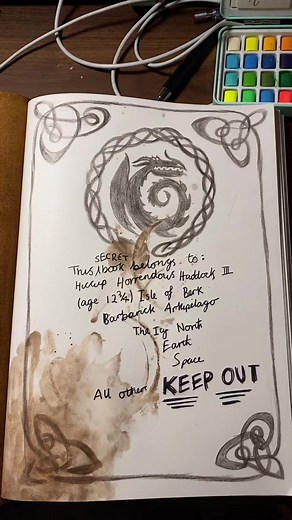 SECRET
This book belongs to:
Hiccup Horrendous Haddock III
(age 12¾) Isle of Berk
Barbarick Arkipelago
The Icy North
Earth
Space
All other KEEP OUT